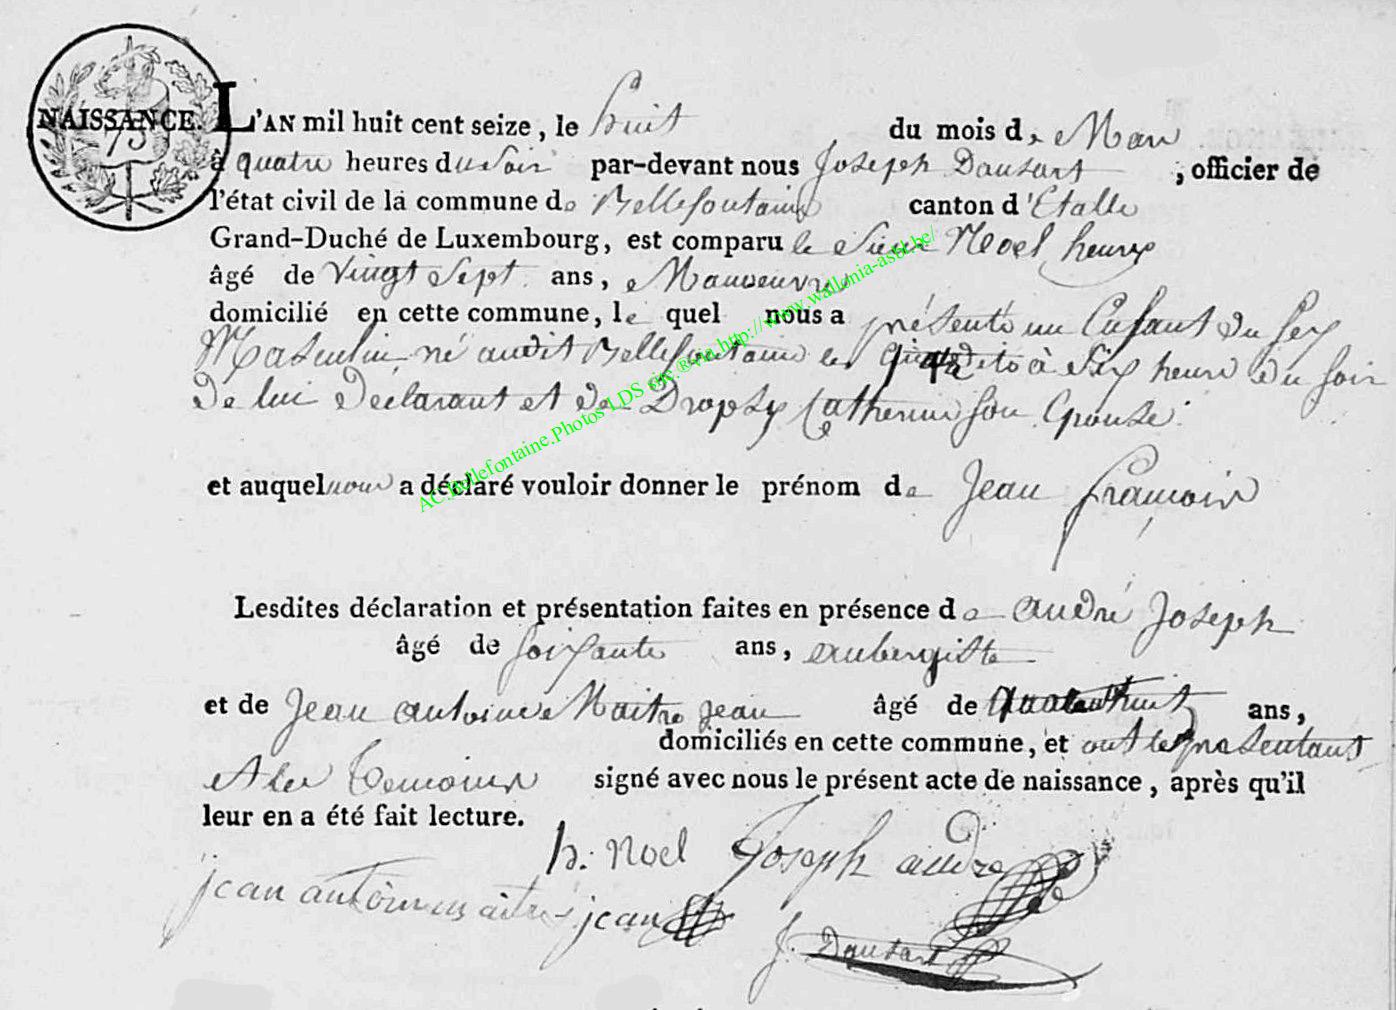 NAISSANCE.
75
L'AN mil huit cent seize, le huit du mois de Mars
à quatre heures du soir par-devant nous Joseph Dausart, officier de
l'état civil de la commune de Bellefontaine canton d'Etalle
Grand-Duché de Luxembourg, est comparu le Sieur Noel henry
âgé de vingt Sept ans, Manoeuvre
domicilié en cette commune, le quel nous a présenté un Enfant du sex
Masculin né audit Bellefontaine le dito à Six heure du soir
de lui Déclarant et de Dropsy Catherine son Epouse.
et auquel nous a déclaré vouloir donner le prénom de Jean françois
Lesdites déclaration et présentation faites en présence de andré Joseph
âgé de soixante ans, aubergiste
et de Jean antoine Maitre jean âgé de ans,
domiciliés en cette commune, et ont le presentant
et les temoins signé avec nous le présent acte de naissance, après qu'il
leur en a été fait lecture.
h. Noel Joseph andre
jean antoine maitre jean
J. Dausart
AC.Bellefontaine.Photos LDS sic.®via http://www.wallonia-asbl.be/